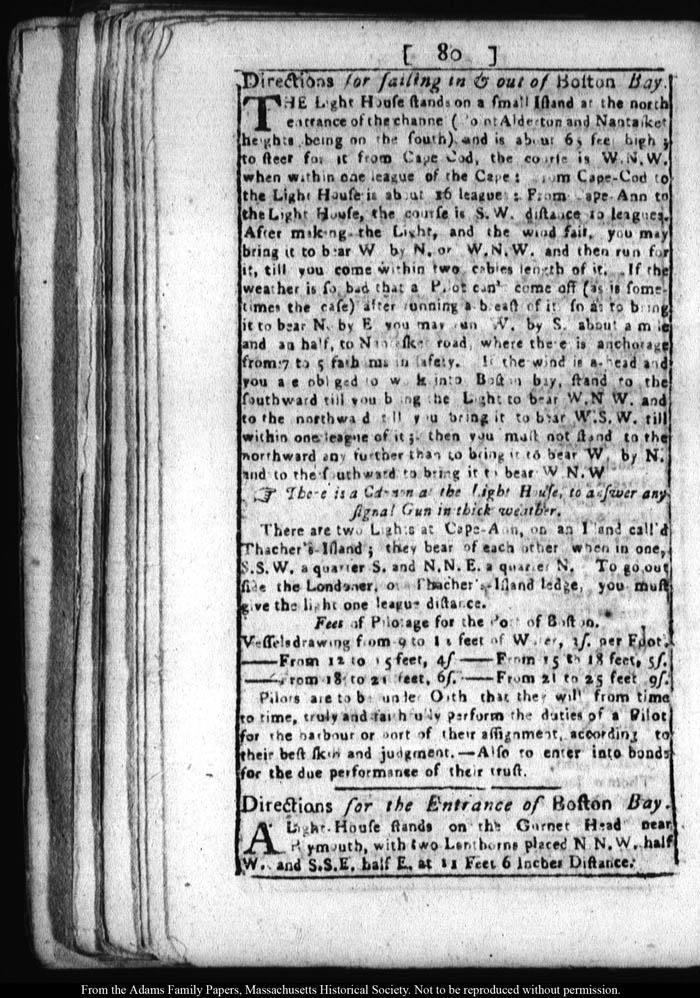 [ 80 ]
Directions for sailing in & out of Boston Bay.
THE Light House stands on a small Island at the north
entrance of the channe (Point Alderton and Nantasket
heights being on the south) and is about 65 feet high ;
to steer for it from Cape Cod, the course is W.N.W.
when within one league of the Cape : from Cape-Cod to
the Light House is about 16 leagues : From Cape-Ann to
the Light House, the course is S.W. distance 10 leagues.
After making the Light, and the wind fair, you may
bring it to bear W by N. or W.N.W. and then run for
it, till you come within two cables length of it. If the
weather is so bad that a Pilot can't come off (as is some-
times the case) after running a breast of it so as to bring
it to bear N. by E you may run W. by S. about a mile
and an half, to Nantasket road, where there is anchorage
from 7 to 5 fathoms in safety. If the wind is a-head and
you are obliged to work into Boston bay, stand to the
southward till you bring the Light to bear W.N W. and
to the northward till you bring it to bear W.S.W. till
within one league of it ; then you must not stand to the
northward any further than to bring it to bear W. by N.
and to the southward to bring it to bear W N.W
☞ There is a Cannon at the Light House, to answer any
signal Gun in thick weather.
There are two Lights at Cape-Ann, on an Island call'd
Thacher's-Island ; they bear of each other when in one,
S.S.W. a quarter S. and N.N.E. a quarter N. To go out
side the Londoner, or Thacher's-Island ledge, you must
give the light one league distance.
Fees of Pilotage for the Port of Boston.
Vessels drawing from 9 to 11 feet of Water, 3s. per Foot.
——From 12 to 15 feet, 4s ——From 15 to 18 feet, 5s.
——From 18 to 21 feet, 6s. ——From 21 to 25 feet 9s.
Pilots are to be under Oath that they will from time
to time, truly and faithfully perform the duties of a Pilot
for the harbour or port of their assignment, according to
their best skill and judgment.—Also to enter into bonds
for the due performance of their trust.
Directions for the Entrance of Boston Bay.
A Light-House stands on the Gurnet Head near
Plymouth, with two Lanthorns placed N N.W. half
W. and S.S.E. half E. at 11 Feet 6 Inches Distance.
From the Adams Family Papers, Massachusetts Historical Society. Not to be reproduced without permission.